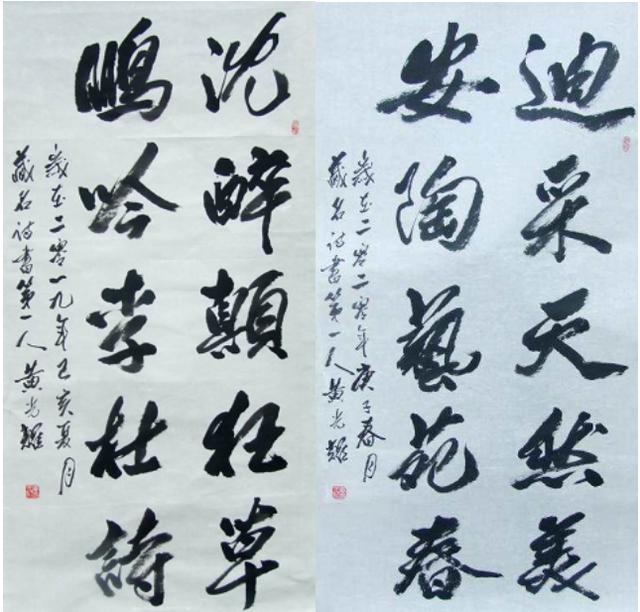 沈醉顛狂草
鵬吟李杜詩
歲在二零一九年己亥夏月
藏名诗書第一人黄光耀
迪采天然美
安陶藝苑春
歲在二零二零年庚子春月
藏名诗書第一人黄光耀